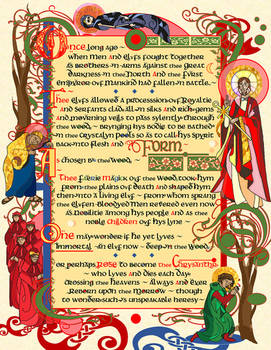 Once long ago ~
When Men and Elfs fought together
as Brothers-in-Arms against thee Great
Darkness in thee North and thee Fyrst
Emperor of Mankind had fallen in Battle.
Thee Elfs allowed a procession of Royaltie
and Servants clad all in silks and rich gems
and mourning veils to pass sylently through
thee Wood, ~ Brynging hys bodie to be bathed
in thee Crystalyn Peels so as to call hys Spirit
back unto Flesh and FORM
As chosen by thee Wood,
Thee Faerie Magick of thee Wood took hym
from thee plains of death and shaped hym
then into a living Elf ~ from whom sprang
thee Elfen-Bloodyed then revered even now
as Nobilitie among hys people and as thee
noble Children of hys lyne ~
One may wonder if he yet lyves ~
Immortal ~ an Elf now ~ deep in thee Wood
Or perhaps Rose to become thee Chrysanthia
~ who lyves and dies each day ~
Crossing thee heavens ~ Always and Ever
Reborn upon thee Morrow ~ though
to wonder such is unspeakable heresy ~